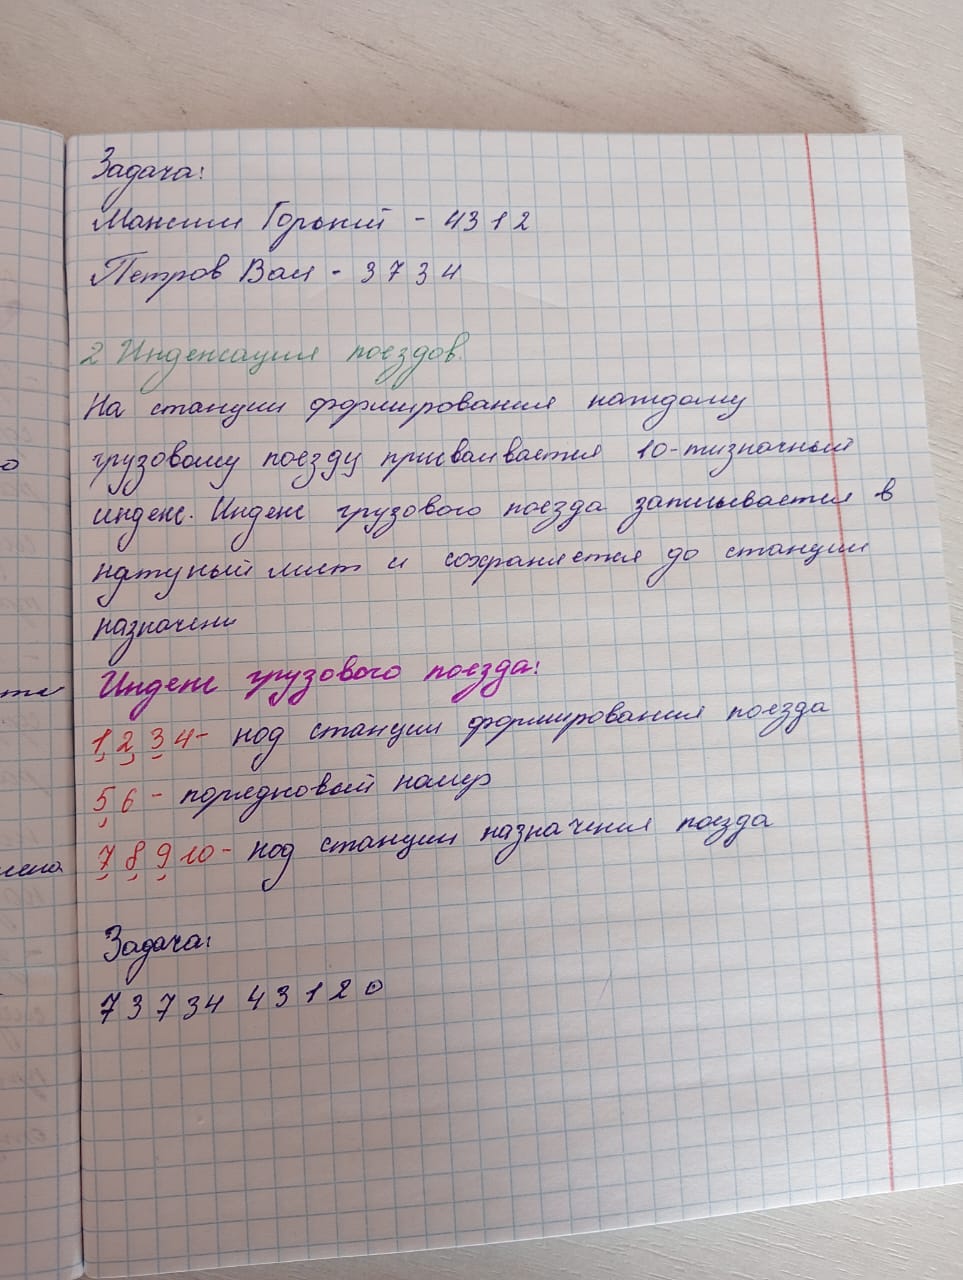 Задача:
Максим Горький - 4312
Петров Вал - 3734
2 Индексация поездов.
На станции формирования каждому
грузовому поезду присваивается 10-тизначный
индекс. Индекс грузового поезда записывается в
натуный лист и сохраняется до станции
назначени
Индекс грузового поезда:
1 2 3 4 - код станции формирования поезда
5 6 - порядковый номер
7 8 9 10 - код станции назначения поезда
Задача:
7 3 7 3 4 4 3 1 2 0